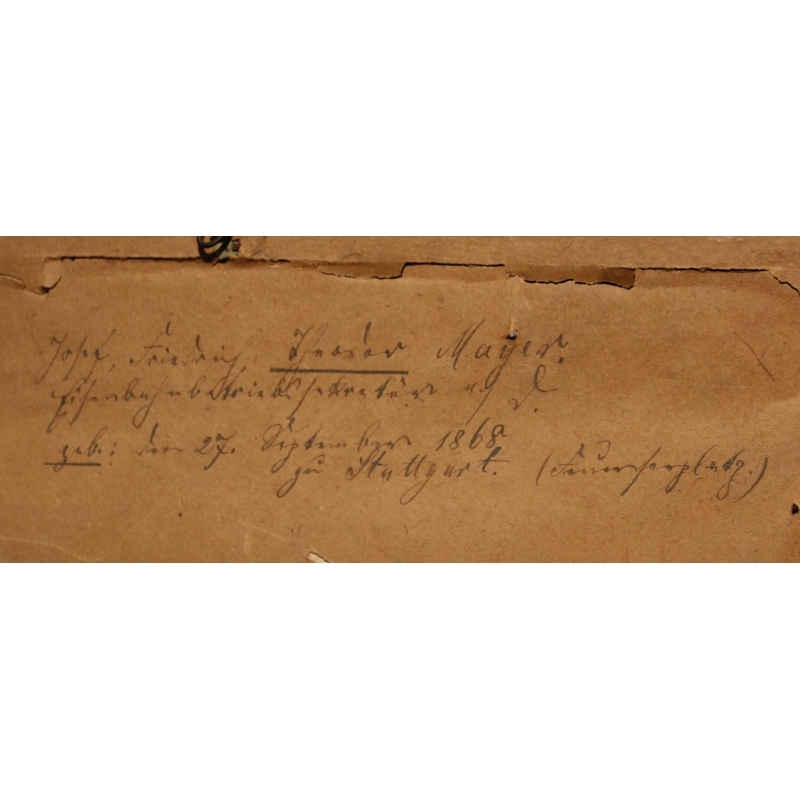 Josef, Friedrich, Theodor Mayer.
Eisenbahnbetriebssekretär a/D.
geb.: den 27. September 1868
zu Stuttgart. (Feuerseeplatz.)